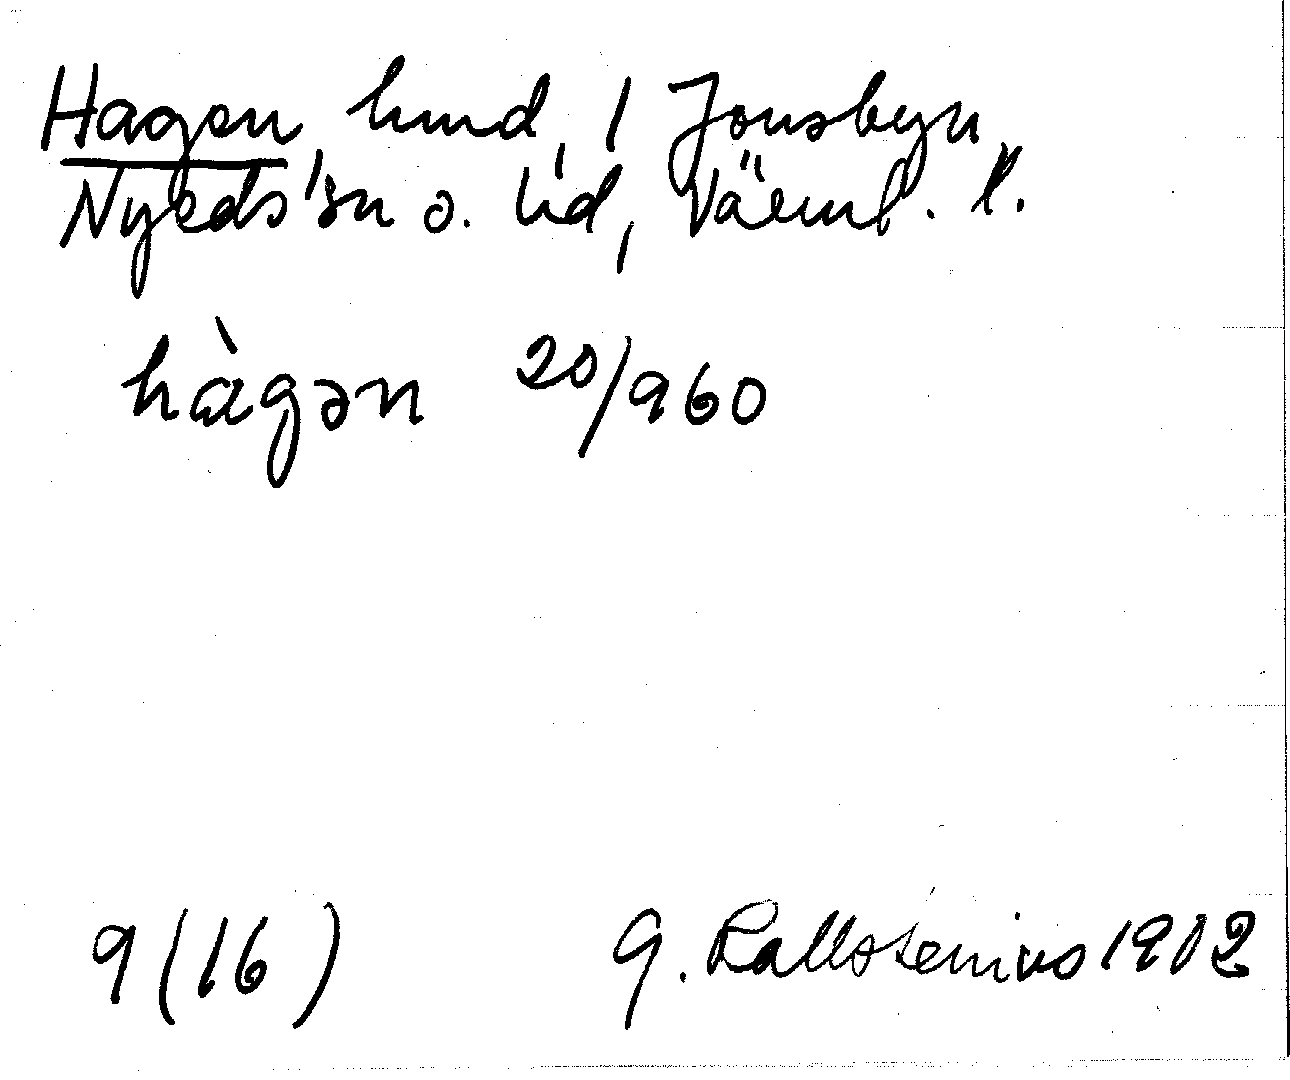 Hagen hmd, 1 Jonsbyn,
Nyeds sn o. hd, Värml. l.
hàgən 20/960
9 (16) G. Kallstenius 1902